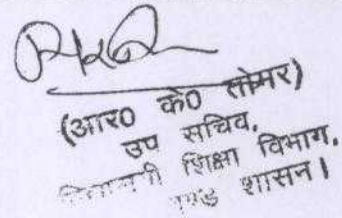 (आर0 के0 तोमर)
उप सचिव,
शिक्षा विभाग,
शासन।